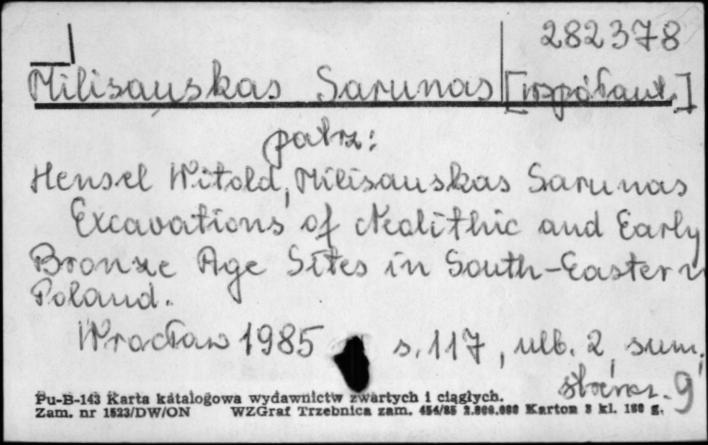 282378
Milisauskas Sarunas [współaut.]
patrz:
Hensel Witold, Milisauskas Sarunas
Excavations of Neolithic and Early
Bronze Age Sites in South-Eastern
Poland.
Wrocław 1985 s. 117, nlb. 2, sum.
9
Pu-B-143 Karta katalogowa wydawnictw zwartych i ciągłych.
Zam. nr 1523/DW/ON WZGraf Trzebnica zam. 454/85 2.000.000 Karton 3 kl. 180 g.